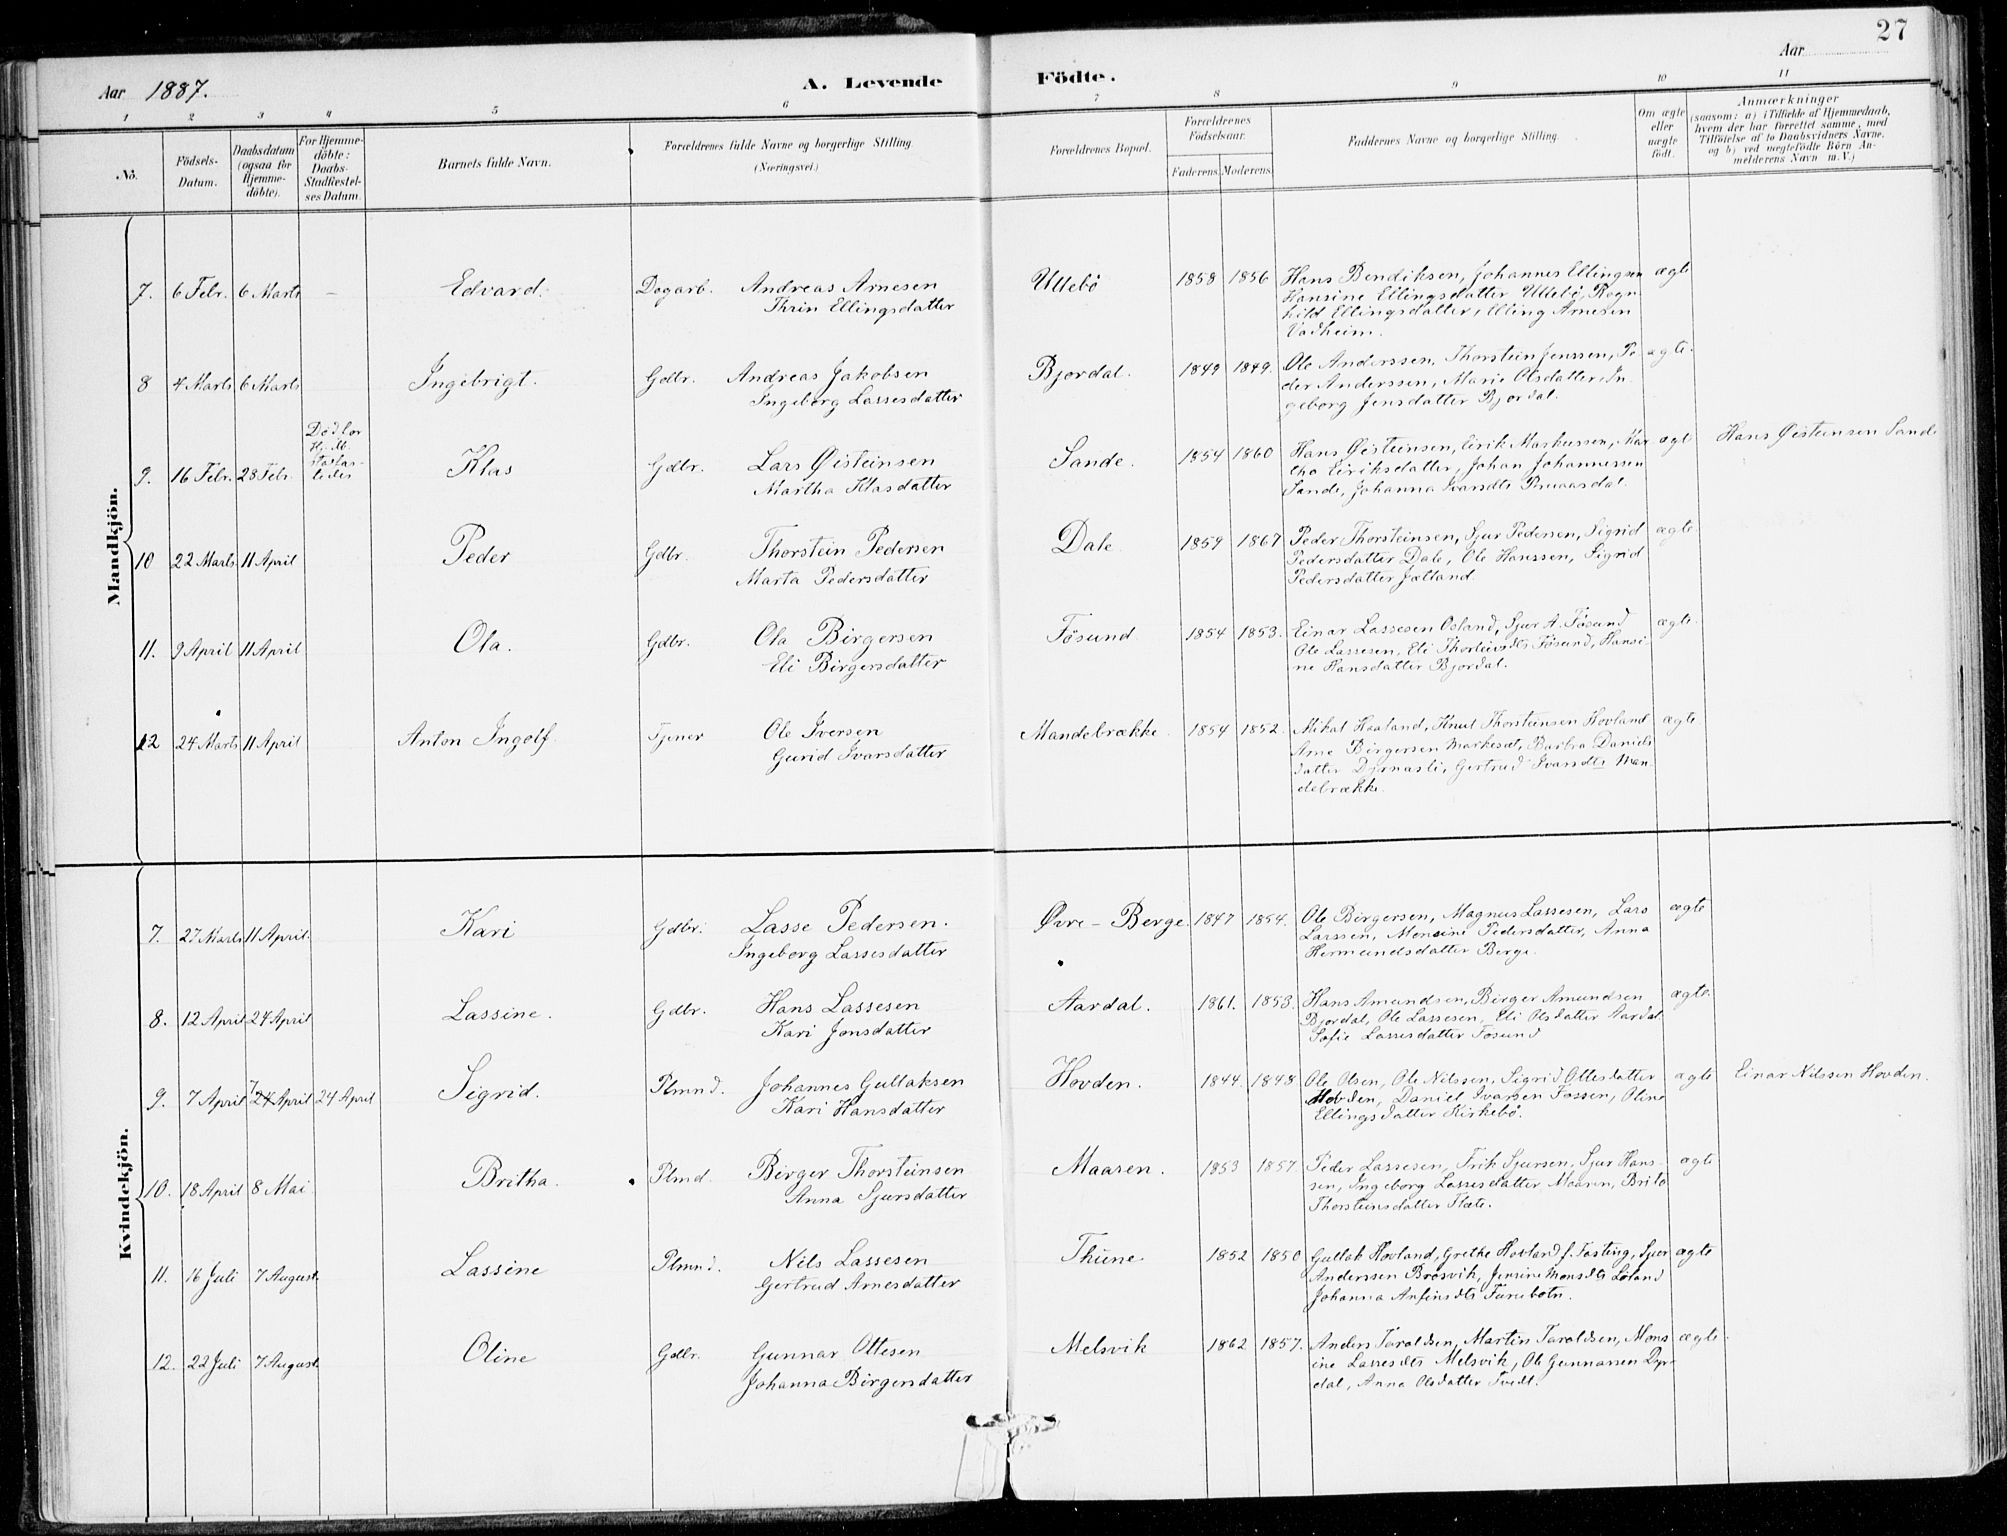 27
Aar 1887.
A. Levende
Födte.
Aar
1 2 3 4 5 6 7 8 9 10 11
No.
Födsels-
Datum.
Daabsdatum
(ogsaa for
Hjemme-
döbte).
For Hjemme-
döbte:
Daabs-
Stadfæstel-
ses Datum.
Barnets fulde Navn.
Forældrenes fulde Navne og borgerlige Stilling
(Næringsvei.)
Forældrenes Bopæl.
Forældrenes
Födselsaar.
Faderens Moderens
Faddernes Navne og borgerlige Stilling
Om ægte
eller
uægte
födt.
Anmærkninger
(saasom: a) i Tilfælde af Hjemmedaab,
hvem der har forrettet samme, med
Tilföielse af to Daabsvidners Navne.
og b) ved uægtefödte Börn An-
melderens Navn m. V.)
Mandkjön.
7. 6 Febr. 6 Marts – Edvard. Dagarb. Andreas Arnesen
Thrin Ellingsdatter
Ullebö 1858 1856 Hans Bendiksen, Johannes Ellingsen
Hansine Ellingsdatter Ullebö, Ragn
hild Ellingsdatter, Elling Arnesen
Vadheim.
ægte
8 4 Marts 6 Marts Ingebrigt. Gdbr. Andreas Jakobsen
Ingeborg Lassesdatter
Bjordal. 1849 1849. Ole Anderssen, Thorstein Jenssen, Pe
der Anderssen, Marie Olsdatter, In
geborg Jensdatter Bjordal.
ægte.
9. 16 Febr. 28 Febr. Död før
Klas Gdbr. Lars Øisteinsen
Martha Klasdatter
Sande. 1854 1860 Hans Øisteinsen, Eirik Markussen, Mar
tha Eiriksdatter, Johan Johannessen
Sande, Johanna Ivarsdtr
ægte Hans Øisteinsen Sande
10 22 Marts 11 April Peder Gdbr. Thorstein Pedersen
Marta Pedersdatter
Dale 1859 1867 Peder Thorsteinsen, Sjur Pedersen, Sigrid
Pedersdatter Dale, Ole Hanssen, Sigrid
Pedersdatter Jætland.
ægte.
11. 9 April 11 April Ola. Gdbr. Ola Birgersen
Eli Birgersdatter
Tösund. 1854 1853. Einar Lassesen Osland, Sjur A. Tösund
Ole Lassesen, Eli Thorleivsdtr Tösund, Hansi
ne Hansdatter Bjordal.
ægte.
12 24 Marts 11 April Anton Ingolf. Tjener Ole Iversen
Gurid Ivarsdatter
Mandebrække. 1854 1852. Mikal Haaland, Knut Thorsteinsen Hovland
Arne Birgersen Markeset, Barbra Daniels
datter Djrnasli, Gertrud Ivarsdtr Man
debrække.
ægte
Kvindekjön.
7. 27 Marts 11 April. Kari Gdbr. Lasse Pedersen.
Ingeborg Lassesdatter
Øvre - Berge 1847 1854. Ole Birgersen, Magnus Lassesen, Lars
Larssen, Monsine Pedersdatter, Anna
Hermundsdatter Berge.
ægte
8. 12 April 24 April Lassine. Gdbr. Hans Lassesen
Kari Jonsdatter
Aardal. 1861. 1853. Hans Amundsen, Birger Amundsen
Bjordal, Ole Lassesen, Eli Olsdatter Aardal
Sofie Lassesdatter Tösund
ægte.
9. 7 April 7 24 April 24 April Sigrid. Plmnd. Johannes Gullaksen
Kari Hansdatter
Hovden. 1844. 1848. Ole Olsen, Ole Nilssen, Sigrid Ottesdatter
Hovden, Daniel Ivarsen Fossen, Oline
Ellingsdatter Kirkebö.
ægte Einar Nilssen Hovden.
10. 18 April 8 Mai. Britha. Plmd. Birger Thorsteinsen
Anna Sjursdatter
Maaren. 1853 1857. Peder Lassesen, Erik Sjursen, Sjur Hans-
sen, Ingeborg Lassesdatter Maaren, Brita
Thorsteinsdatter Flete.
ægte
11. 16 Juli 7 August. Lassine Plmnd. Nils Lassesen
Gertrud Arnesdatter
Thune 1852 1850 Gullak Hovland, Grethe Hovland f. Fasting, Sjur
Anderssen Brosvik, Jensine Monsdtr Löland
Johanna Anfinsdtr Furebotn.
ægte
12. 22 Juli 7 August. Oline Gdbr. Gunnar Ottesen
Johanna Birgersdatter
Melsvik 1862 1857. Anders Taraldsen, Martin Taraldsen, Mons
ine Lassesdtr Melsvik, Ole Gunnarsen Dyr-
dal, Anna Olsdatter Tvedt.
ægte.